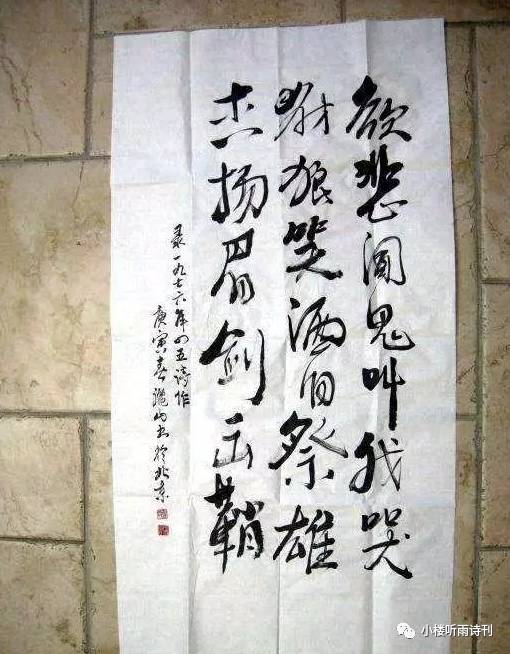 欲悲闻鬼叫我哭
豺狼笑洒泪祭雄
杰扬眉剑出鞘
录一九七六年四五诗作
庚寅春山书於北京
小楼听雨诗刊